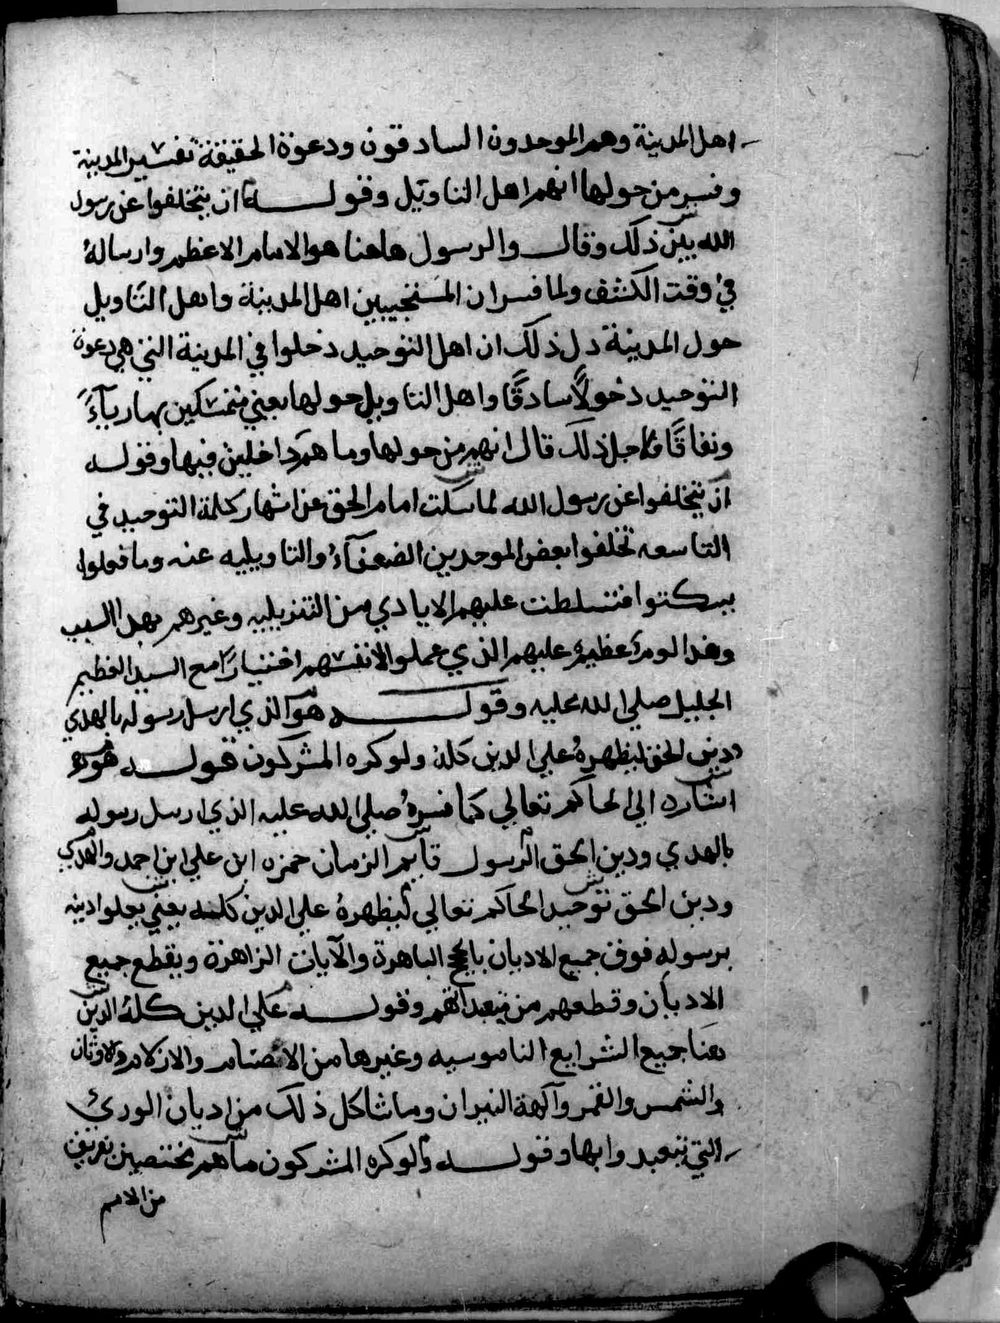 اهل المدينة وهم الموحدون السادقون ودعوة الحقيقة تفسير المدينة
وفسر من حولها انهم اهل التاويل وقوله ان يتخلفوا عن رسول
الله بين ذلك وقال والرسول هاهنا هو الامام الاعظم وارساله
في وقت الكشف ولما فسر ان المستجيبين اهل المدينة واهل التاويل
حول المدينة دل ذلك ان اهل التوحيد دخلوا في المدينة التي هي دعوة
التوحيد دخولًا سادقًا واهل التاويل حولها يعني متمسكين بها رياءً
ونفاقًا فلاجل ذلك قال انهم من حولها وما هم داخلين فيها وقوله
ان يتخلفوا عن رسول الله لما سكت امام الحق عن اشهار كلمة التوحيد في
التاسعه تخلفوا بعض الموحدين الضعفآء والتاويليه عنه وما قبلوا
يسكتوا فتسلطت عليهم الايادي من التنزيليه وغيرهم بهذا السبب
وهذا لوم عظيم عليهم الذي عملوا لانفسهم اختيارًا مع السيد العظيم
الجليل صلى الله عليه وقوله هو الذي ارسل رسوله بالهدي
ودين الحق ليظهره علي الدين كله ولو كره المشركون قوله هو
اشاره الي الحاكم تعالي كما فسره صلي الله عليه الذي ارسل رسوله
بالهدي ودين الحق الرسول قايم الزمان حمزه ابن علي ابن احمد والهدي
ودين الحق توحيد الحاكم تعالي ليظهره علي الدين كله يعني يعلوا دينه
برسوله فوق جميع الاديان بالحجج الباهرة والآيات الزاهرة ويقطع جميع
الاديان وقطعهم من بعد القم وقوله علي الدين كله الدين
هنا جميع الشرايع الناموسيه وغيرها من الاصنام والازلام والاوثان
والشمس والقمر وآلهة النيران وما شاكل ذلك من اديان الوري
التي تعبدوا بها وقوله ولو كره المشركون ما هم مختصين بفريق
من الامم